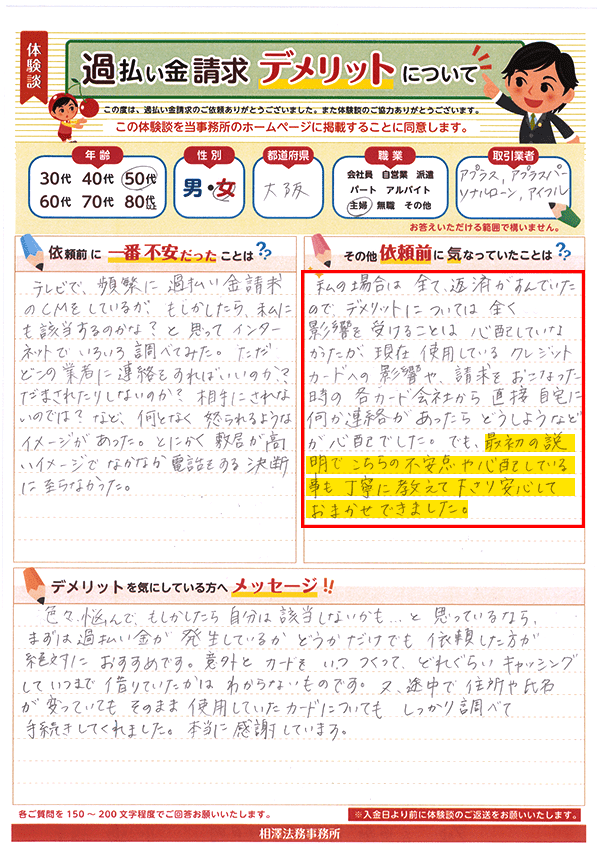 体験談
過払い金請求 デメリットについて
この度は、過払い金請求のご依頼ありがとうございました。また体験談のご協力ありがとうございます。
この体験談を当事務所のホームページに掲載することに同意します。
年齢
30代 40代 50代
60代 70代 80代以上
性別
男・女
都道府県
大阪
職業
会社員 自営業 派遣
パート アルバイト
主婦 無職 その他
取引業者
アプラス、アプラスパー
ソナルローン、アイフル
お答えいただける範囲で構いません。
依頼前に 一番不安だった ことは??
テレビで、頻繁に過払い金請求
のCMをしているが、もしかしたら、私に
も該当するのかな?と思ってインター
ネットでいろいろ調べてみた。ただ
どこの業者に連絡をすればいいのか?
だまされたりしないのか?相手にされな
いのでは?など、何となく怒られるような
イメージがあった。とにかく敷居が高
いイメージでなかなか電話をする決断
に至らなかった。
その他 依頼前に気なっていたことは??
私の場合は全て、返済がすんでいた
ので、デメリットについては全く
影響を受けることは心配していな
かったが、現在使用しているクレジット
カードへの影響や、請求をおこなった
時の各カード会社から直接自宅に
何か連絡があったらどうしようなど
が心配でした。でも、最初の説
明でこちらの不安点や心配している
事も丁寧に教えて下さり安心して
おまかせできました。
デメリットを気にしている方へ メッセージ!!
色々、悩んで、もしかしたら自分は該当しないかも…と思っているなら、
まずは過払い金が発生しているかどうかだけでも依頼した方が
絶対におすすめです。意外とカードをいつつくって、どれぐらいキャッシング
していつまで借りていたかはわからないものです。又、途中で住所や氏名
が変っていてもそのまま使用していたカードについてもしっかり調べて
手続きしてくれました。本当に感謝しています。
各ご質問を150~200文字程度でご回答お願いいたします。
※入金日より前に体験談のご返送をお願いいたします。
相澤法務事務所